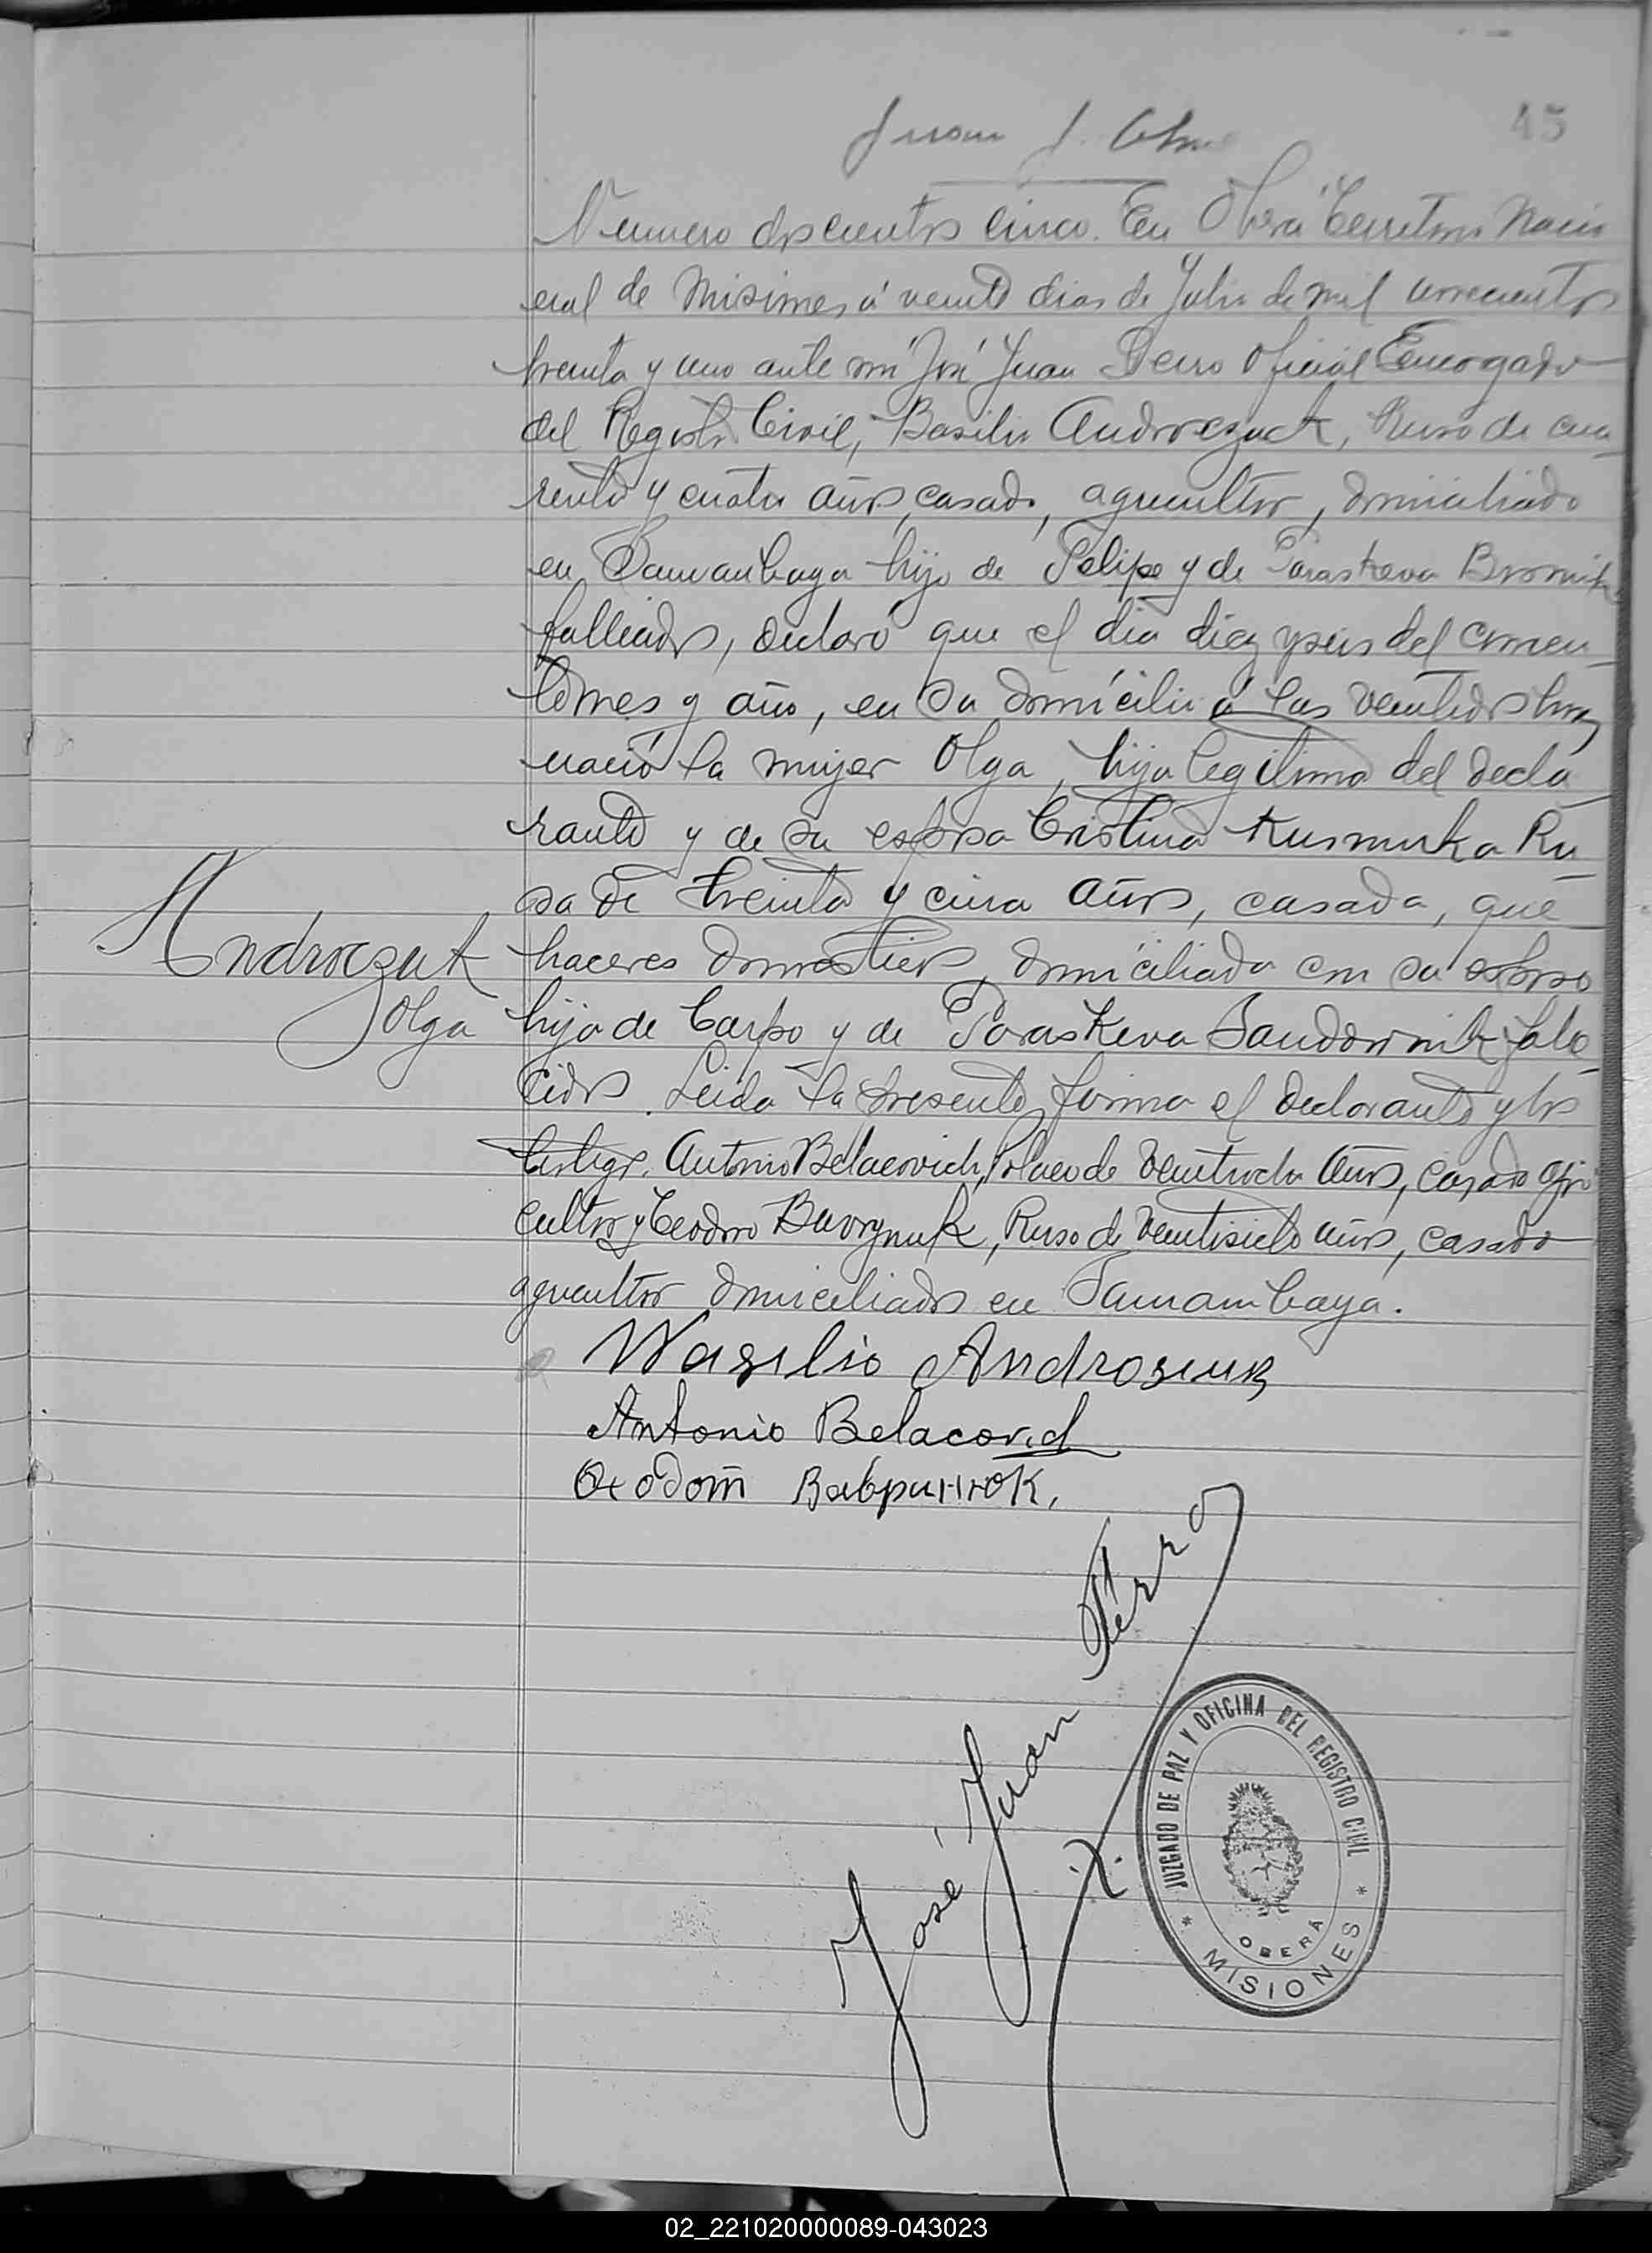 45
Juan J.
Numero doscientos cinco. En Oberá Territorio Nacio
nal de Misiones á veinte dias de Julio de mil novecientos
treinta y uno ante mi José Juan Perro Oficial Encargado
del Registro Civil, Basilio Androczuck, Ruso de cua
renta y cuatro años, casado, agricultor, domiciliado
en Tamanbaya hijo de Felipe y de Paraskeva
fallecidos, declaró que el dia diez y seis del corrien
te mes y año, en su domicilio á las veintidos horas
nació la mujer Olga, hija legitima del decla
rante y de su esposa Cristina Kusmuka Ru
sa de treinta y cinco años, casada, que
haceres domesticos, domiciliada con su esposo
hija de Carpo y de Paraskeva falle
cidos. Leida la presente, firma el declarante y los
testigos, Antonio Belacovich, Polaco de años, casado agri
cultor y Teodoro Bavrynuk, Ruso de veintisiete años, casado
agricultor domiciliados en Tamambaya.
Androczuk
Olga
Wasilio Androsiuk
Antonio Belacovich
Ѳеодотъ Вавринюк.
José Juan Perro
JUZGADO DE PAZ Y OFICINA DEL REGISTRO CIVIL
OBERÁ
* MISIONES *
02_221020000089-043023